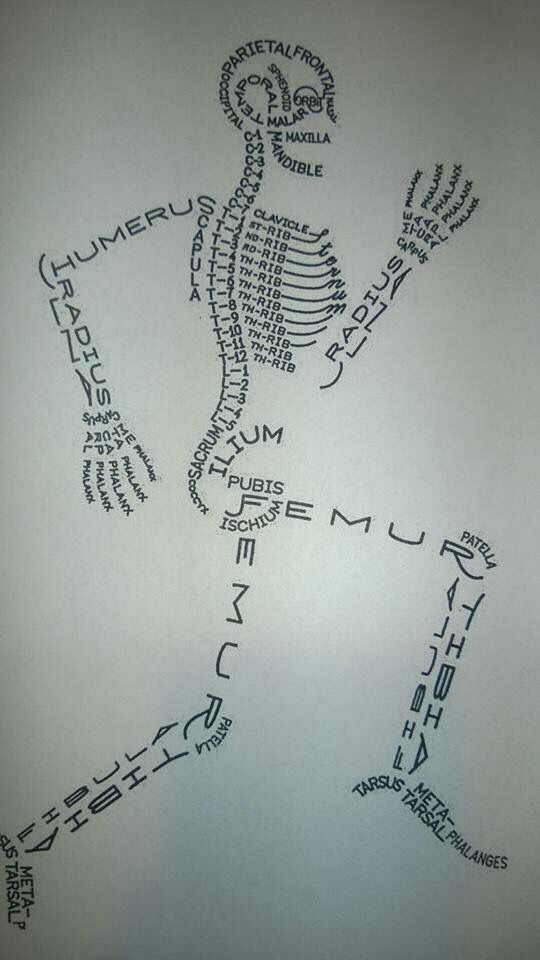 PARIETAL
FRONTAL
NASAL
OCCIPITAL
TEMPORAL
SPHENOID
ORBIT
MALAR
MAXILLA
MANDIBLE
C-1
C-2
C-3
C-4
C-5
C-6
C-7
CLAVICLE
T-1 ST-RIB
T-2 ND-RIB
T-3 RD-RIB
T-4 TH-RIB
T-5 TH-RIB
T-6 TH-RIB
T-7 TH-RIB
T-8 TH-RIB
T-9 TH-RIB
T-10 TH-RIB
T-11 TH-RIB
T-12 TH-RIB
sternum
SCAPULA
HUMERUS
RADIUS
ULNA
CARPUS
META
CARPAL
PHALANX
PHALANX
PHALANX
PHALANX
PHALANX
RADIUS
ULNA
CARPUS
META
CARPAL
PHALANX
PHALANX
PHALANX
PHALANX
PHALANX
L-1
L-2
L-3
L-4
L-5
SACRUM
COCCYX
ILIUM
PUBIS
ISCHIUM
FEMUR
PATELLA
TIBIA
FIBULA
TARSUS
META-
TARSAL
PHALANGES
FEMUR
PATELLA
TIBIA
FIBULA
SUS
META-
TARSAL
P